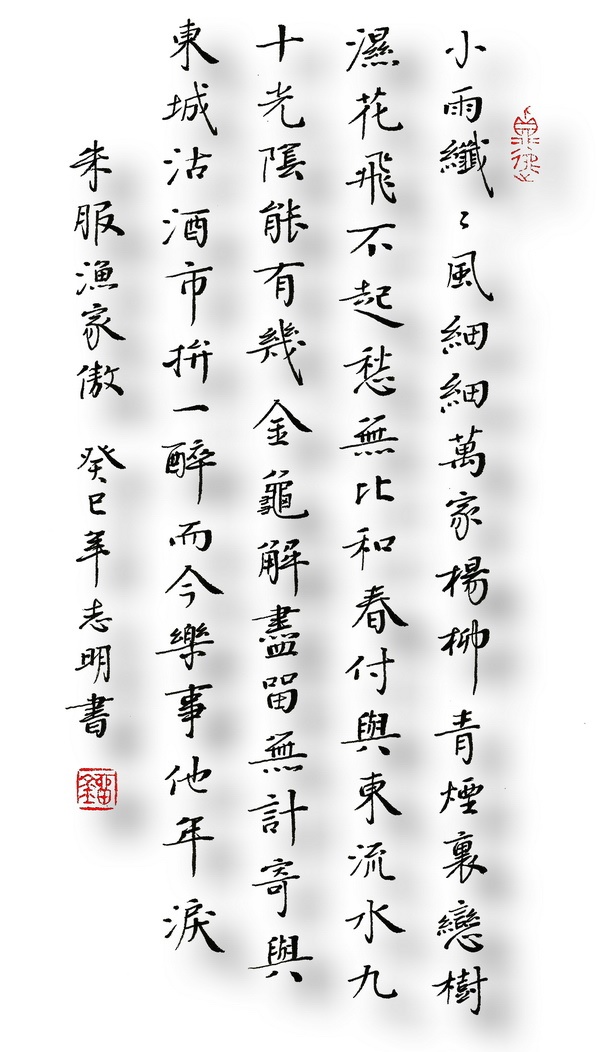 小雨纖〻風細細萬家楊柳青煙裏戀樹
濕花飛不起愁無比和春付與東流水九
十光陰能有幾金龜解盡留無計寄與
東城沽酒市拚一醉而今樂事他年淚
朱服漁家傲 癸巳年志明書